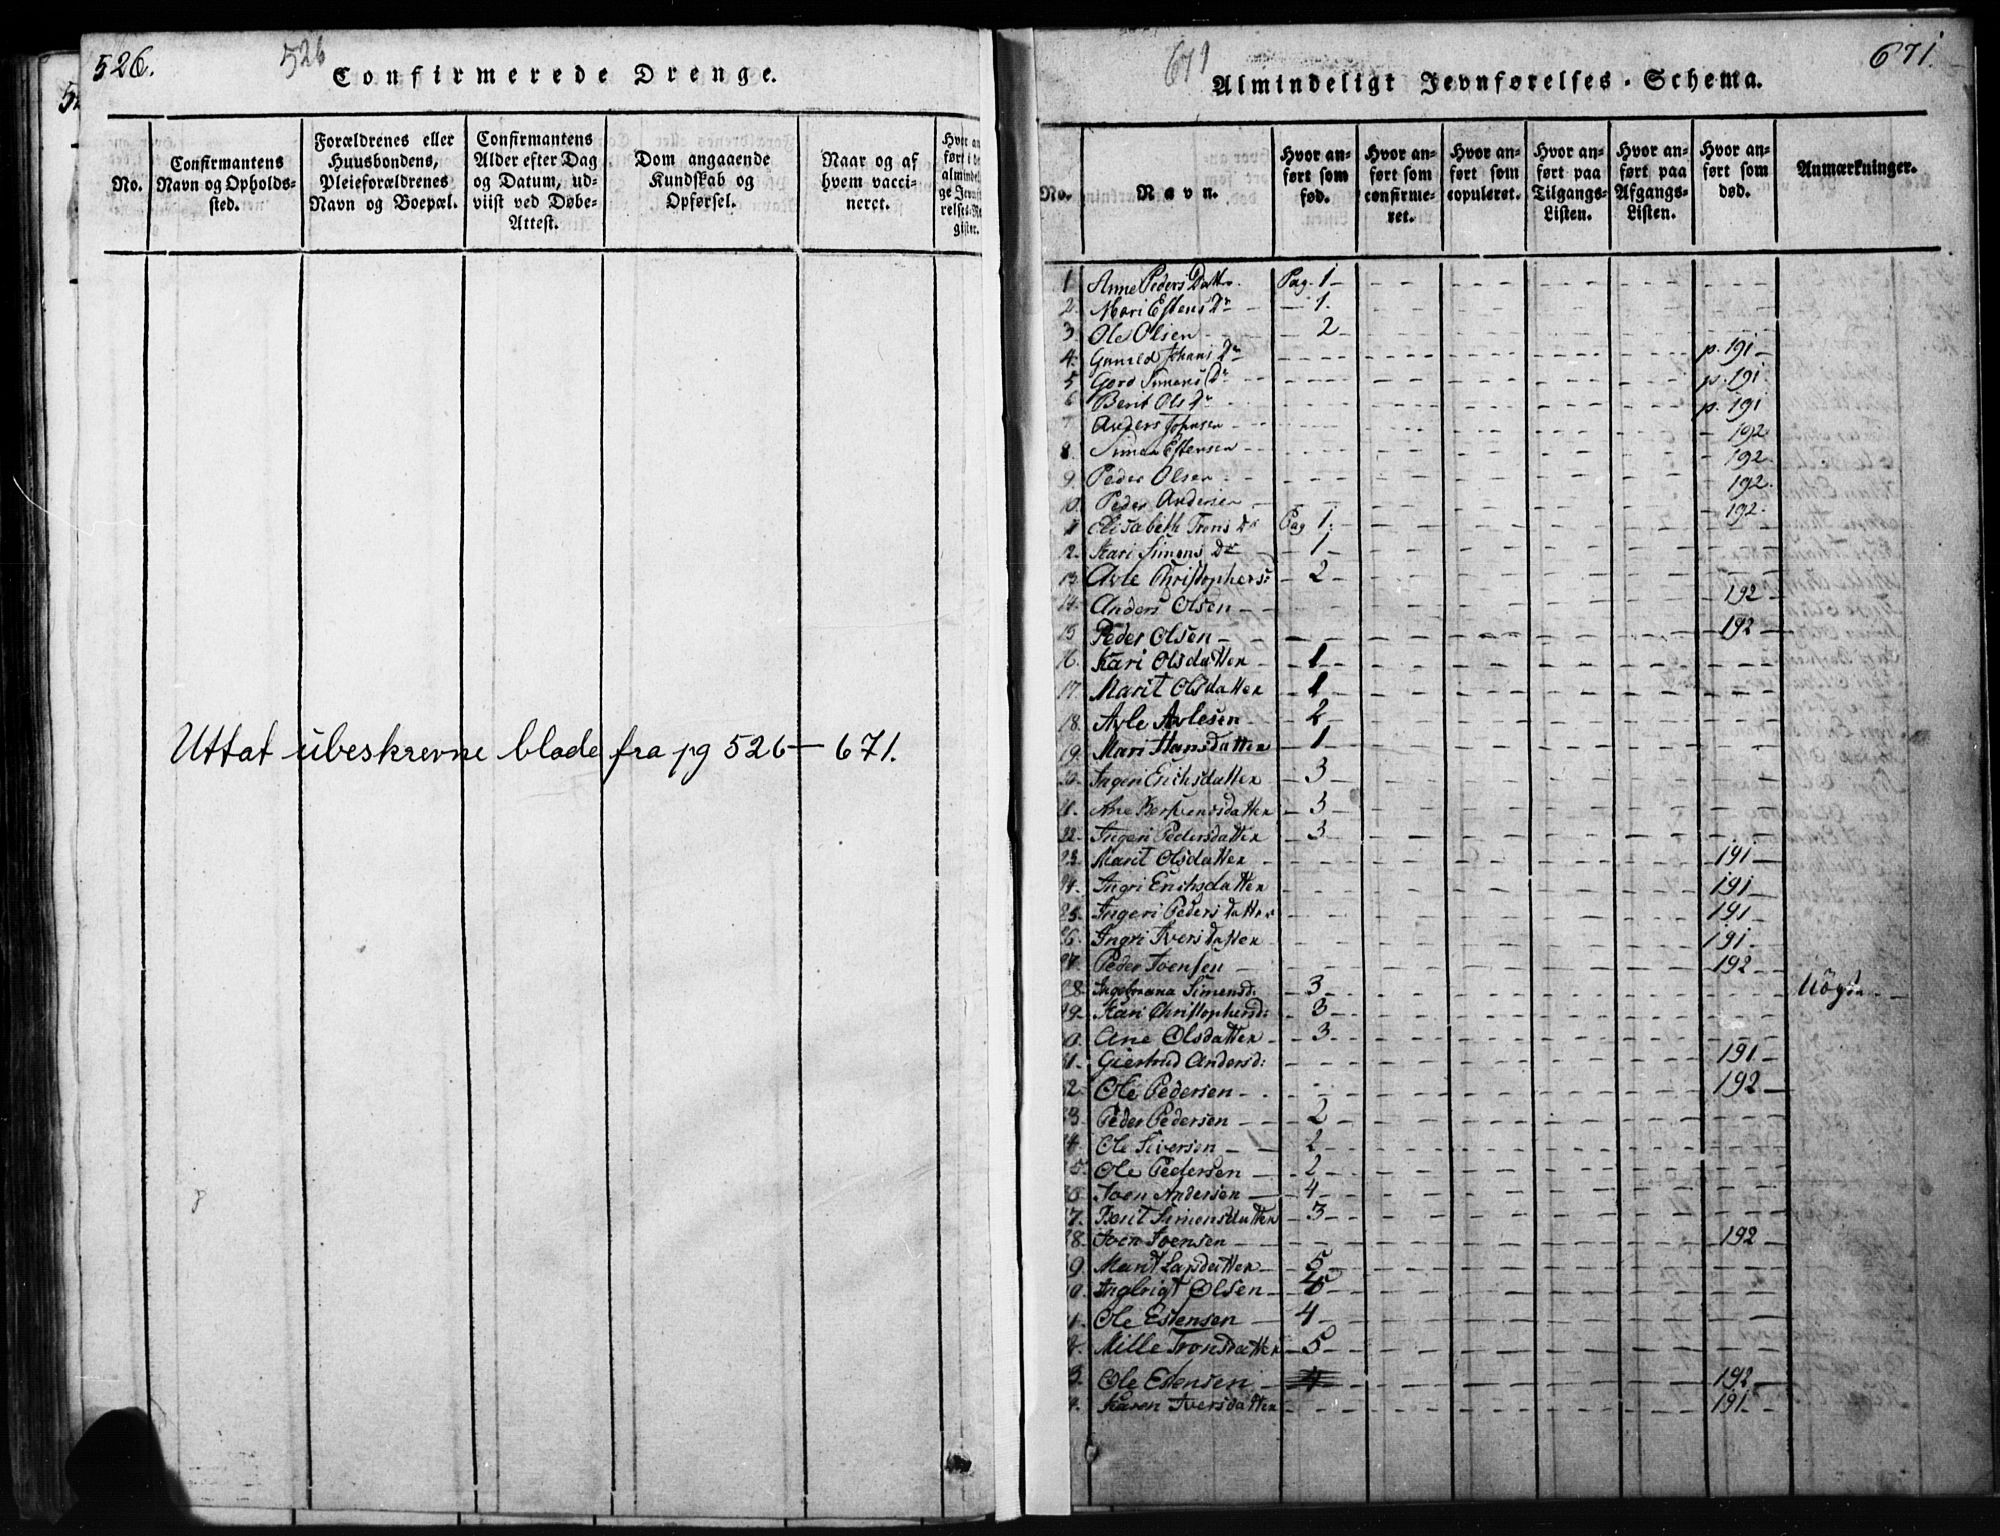 526. 526
Confirmerede Drenge.
No. | Confirmantens Navn og Opholdssted. | Forældrenes eller Huusbondens, Pleieforældrenes Navn og Boepæl. | Confirmantens Alder efter Dag og Datum, udviist ved Døbe-Attest. | Dom angaaende Kundskab og Opførsel. | Naar og af hvem vaccineret.
Uttat ubeskrevne blade fra pg 526 — 671.
671 671.
Almindeligt Jevnførelses-Schema.
No. | Navn. | Hvor anført som fød. | Hvor anført som confirmeret. | Hvor anført som copuleret. | Hvor anført paa Tilgangs-Listen. | Hvor anført paa Afgangs-Listen. | Hvor anført som død. | Anmærkninger.
1 Anne Peders Dattr. Pag. 1
2. Mari Estens Dr 1.
3. Ole Olsen 2
4. Gunild Johans Dr p. 191
5 Goro Simens Dr p. 191
6 Berit Ols Dr p. 191
7 Anders Johnsen 192
8. Simen Estensen 192
9. Peder Olsen 192.
10. Peder Andersen 192.
11 Elisabeth Trons Dr Pag 1.
12. Kari Simons Dr 1
13. Avle Christophers: 2
14. Anders Olsen 192
15 Peder Olsen 192
16. Kari Olsdatter 1
17. Marit Olsdatter 1
18. Avle Avlesen 2
19. Mari Hansdatter 1
20. Ingeri Erichsdatter 3
21. Ane 3
22. Ingeri Pedersdatter 3
23. Marit Olsdatter 191
24. Ingri Erichsdatter 191
25. Ingeri Peders datter 191
26. Ingri Iversdatter 191
27. Peder Joensen 192
28. Simensd: 3
29. Kari Christophersd: 3
30. Ane Olsdatter 3
31. Giertrud Andersd: 191
32. Ole Pedersen 192
33. Peder Pedersen 2
34. Ole Siversen 2
35. Ole Pedersen 2
36. Joen Andersen 4
37. Berit Simensdatter 3
38. Joen Joensen 192
39. Marit Larsdatter 5
40. Ingbrigt Olsen
41. Ole Estensen 4
42. Mille Tronsdatter 5
43. Ole Estensen 4 192
44. Karen Iversdatter 191